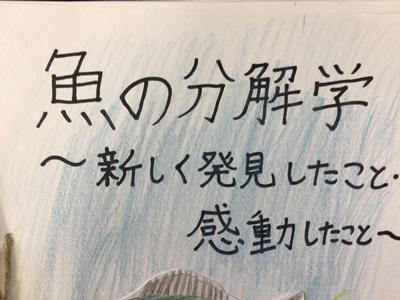 魚の分解学
〜新しく発見したこと・
感動したこと〜